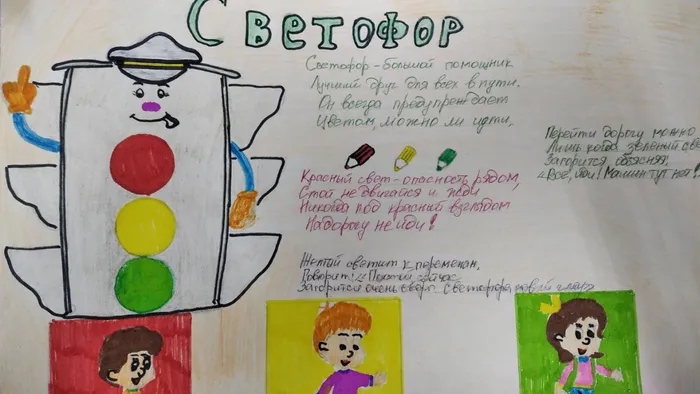 Светофор
Светофор - большой помощник
Лучший друг для всех в пути.
Он всегда предупреждает
Цветом, можно ли идти.
Красный свет - опасность рядом,
Стой не двигайся и жди
Никогда под красный взглядом
На дорогу не иди!
Желтый светит к переменам,
Говорит: «Подожди, сейчас
Загорится очень скоро светофора новый глаз»
Перейти дорогу можно
Лишь когда зеленый све
Загорится, объясняя:
«Все, иди! Машин тут нет!»